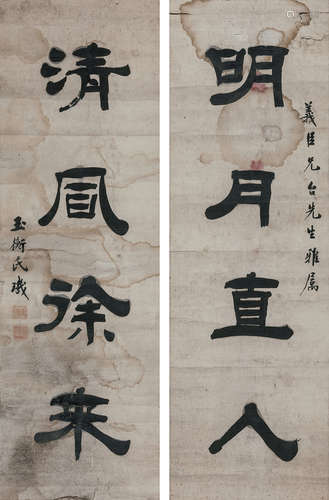 義臣兄台先生雅屬
明月直入
清風徐来
玉衡氏璣